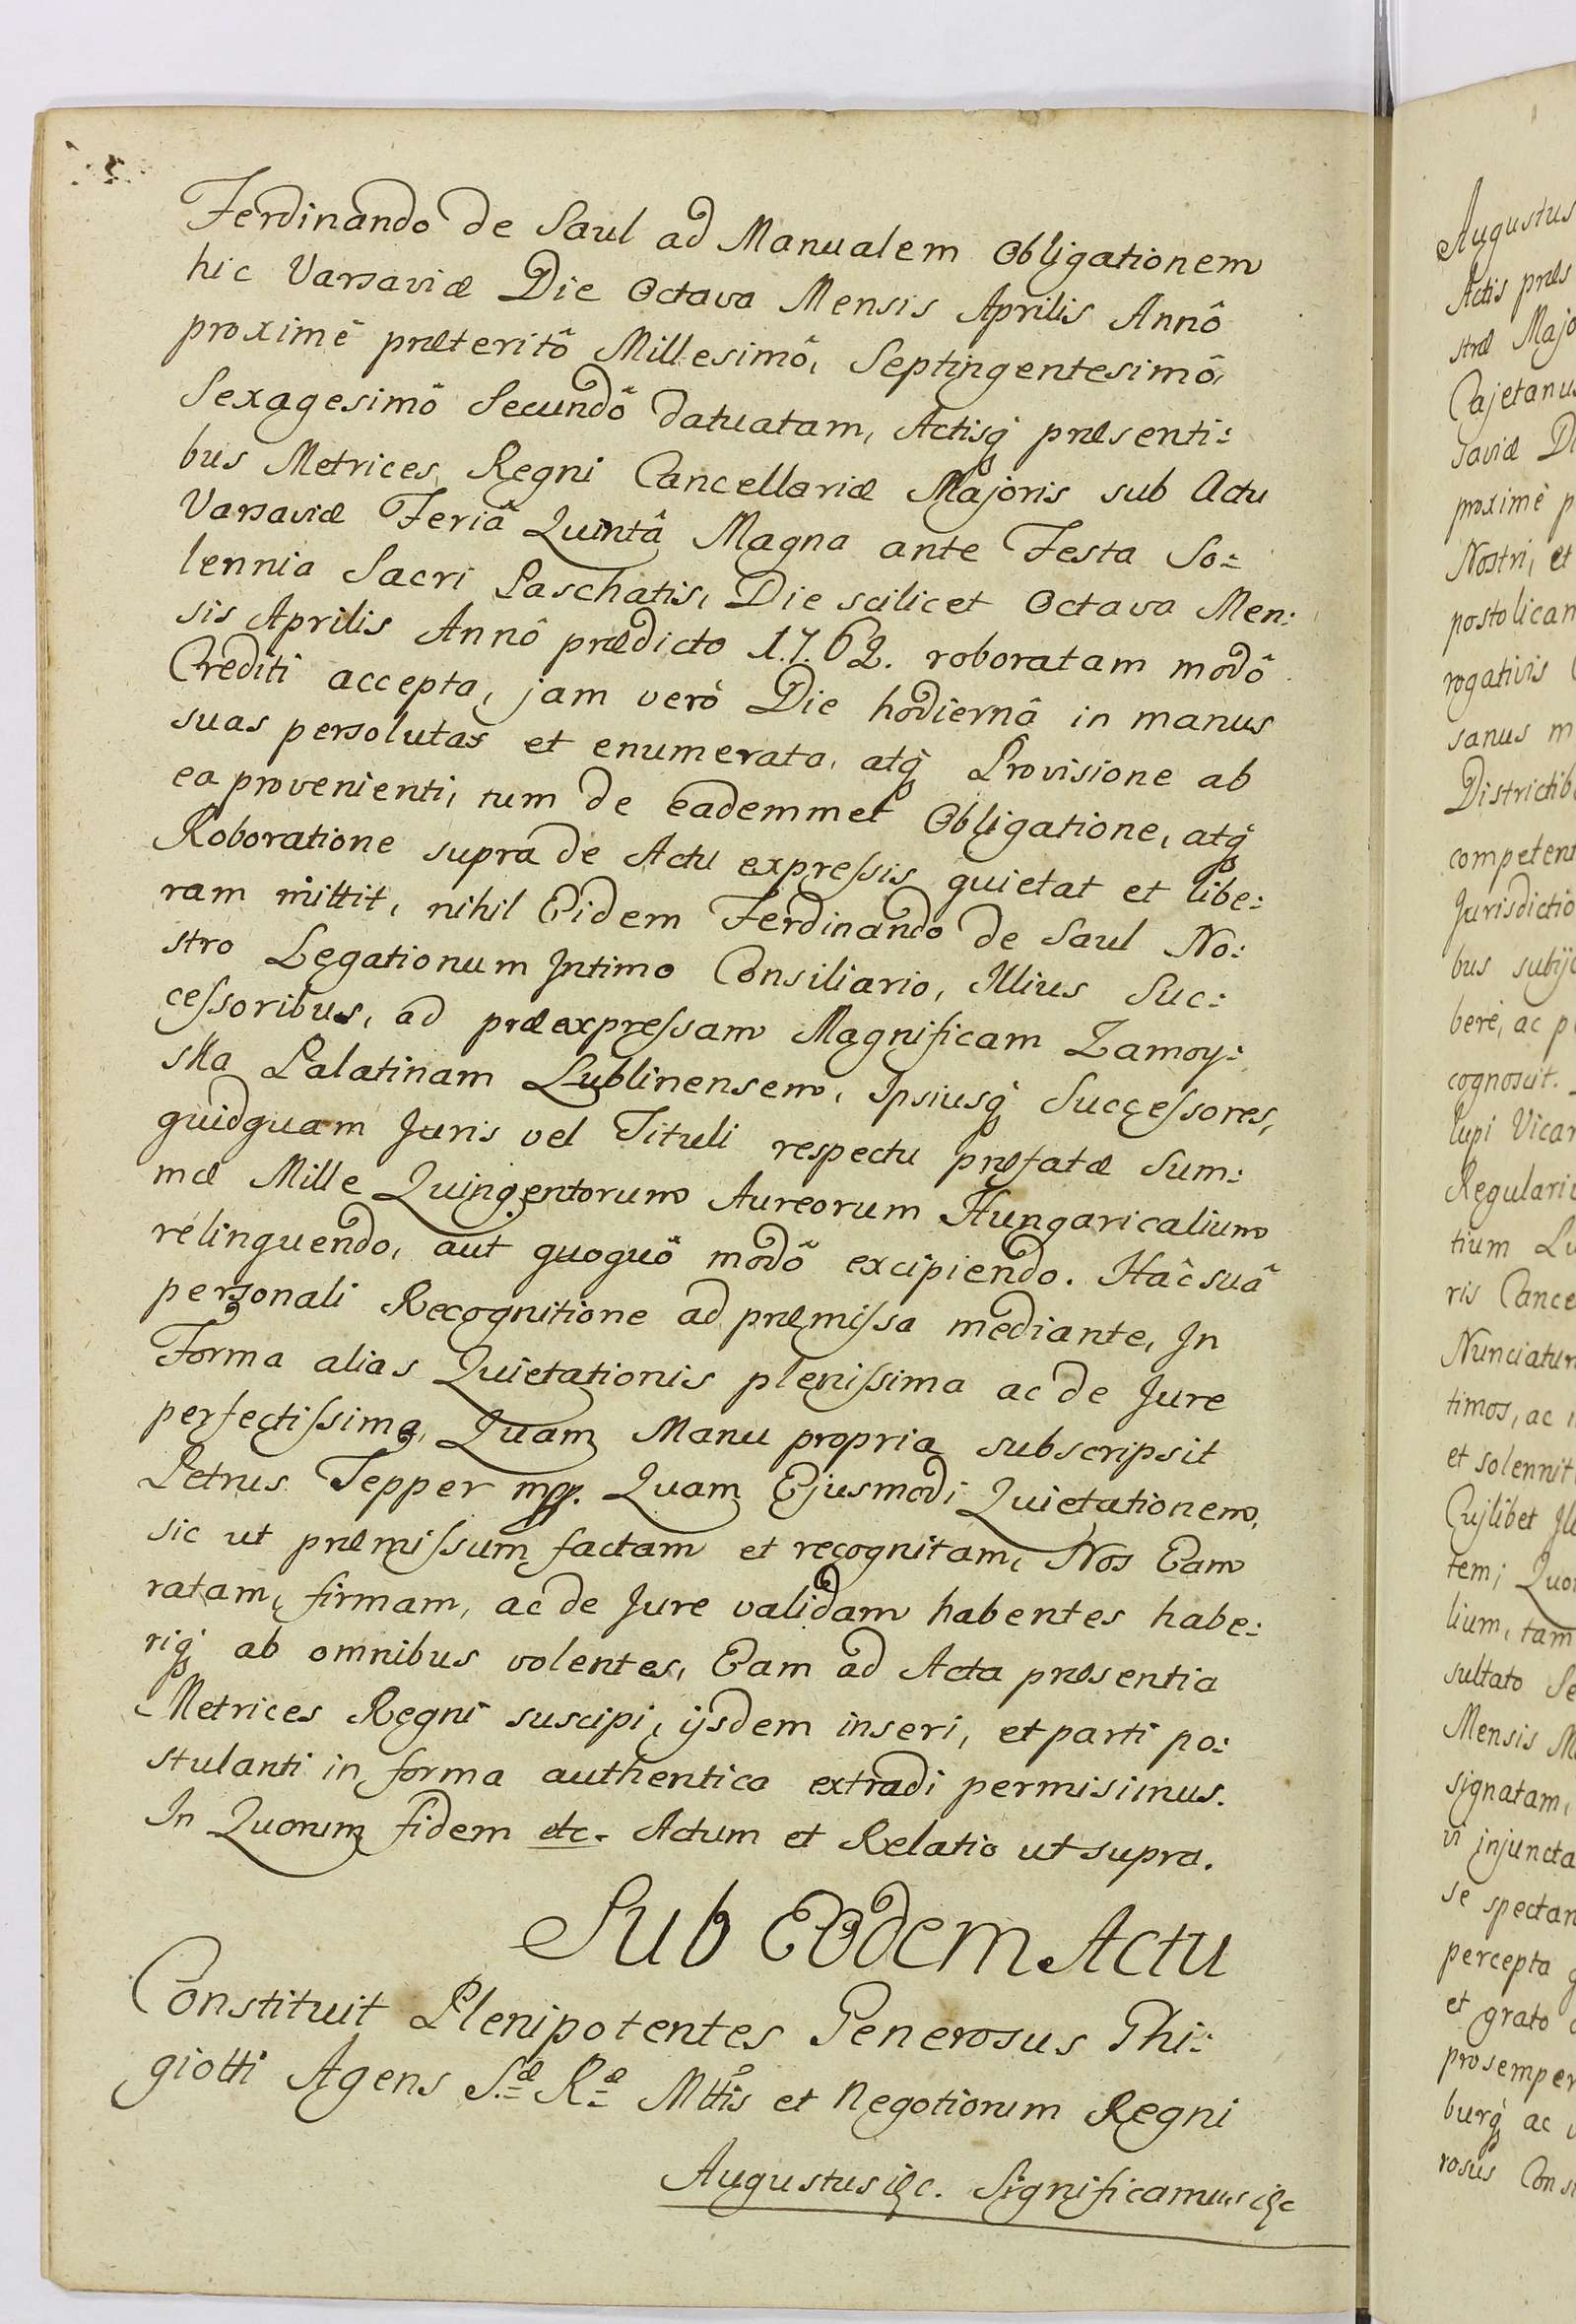 Ferdinando de Saul ad Manualem Obligationem
hic Varsaviæ Die Octava Mensis Aprilis Annô
proximè præteritô Millesimô, Septingentesimô,
Sexagesimô Secundô datuatam, Actisq́ præsenti:
bus Metrices Regni Cancellariæ Majoris sub Actu
Varsaviæ Feriâ Quintâ Magna ante Festa So:
lennia Sacri Paschatis, Die scilicet Octava Men:
sis Aprilis Annô prædicto 1762. roboratam modô
Crediti accepta, jam verò Die hodiernâ in manus
suas persolutas et enumerata, atq́ Provisione ab
ea provenienti, tum de eademmet Obligatione, atq́
Roboratione supra de Actu expressis quietat et libe:
ram mittit, nihil Eidem Ferdinando de Saul No:
stro Legationum Intimo Consiliario, Illius Suc:
cessoribus, ad præexpressam Magnificam Zamoy:
ska Palatinam Lublinensem, Ipsiusq́ Successores,
quidquam Juris vel Tituli respectu præfatæ Sum:
mæ Mille Quingentorum Aureorum Hungaricalium
relinquendo, aut quoquô modô excipiendo. Hâc suâ
personali Recognitione ad præmissa mediante, In
Forma alias Quietationis plenissima ac de Jure
perfectissima, Quam Manu propria subscripsit
Petrus Tepper mpp. Quam Ejusmodi Quietationem,
sic ut præmissum factam et recognitam, Nos Eam
ratam, firmam, ac de Jure validam habentes habe:
riq́ ab omnibus volentes, Eam ad Acta præsentia
Metrices Regni suscipi, ijsdem inseri, et parti po:
stulanti in forma authentica extradi permisimus.
In Quorum fidem etc. Actum et Relatio ut supra.
Sub Eodem Actu
Constituit Plenipotentes Generosus Ghi:
giotti Agens S.æ R.æ Mttis et Negotiorum Regni
Augustus etc. Significamus etc
Augustus
Actis præs
stræ Majo
Cajetanus
saviæ Di
proximè p
Nostri, et
postolicam
rogativis
sanus m
Districtib
competent
Jurisdictio
bus subijc
berè, ac p
cognoscit.
lupi Vicar
Regulari
tium Lu
ris Cance
Nunciatur
timos, ac
et solennit
Cujlibet Il
tem; Quo
lium, tam
sultato Se
Mensis M
signatam,
vi injuncta
se spectan
percepta
et grato
pro semper
burq́ ac
rosus Cons